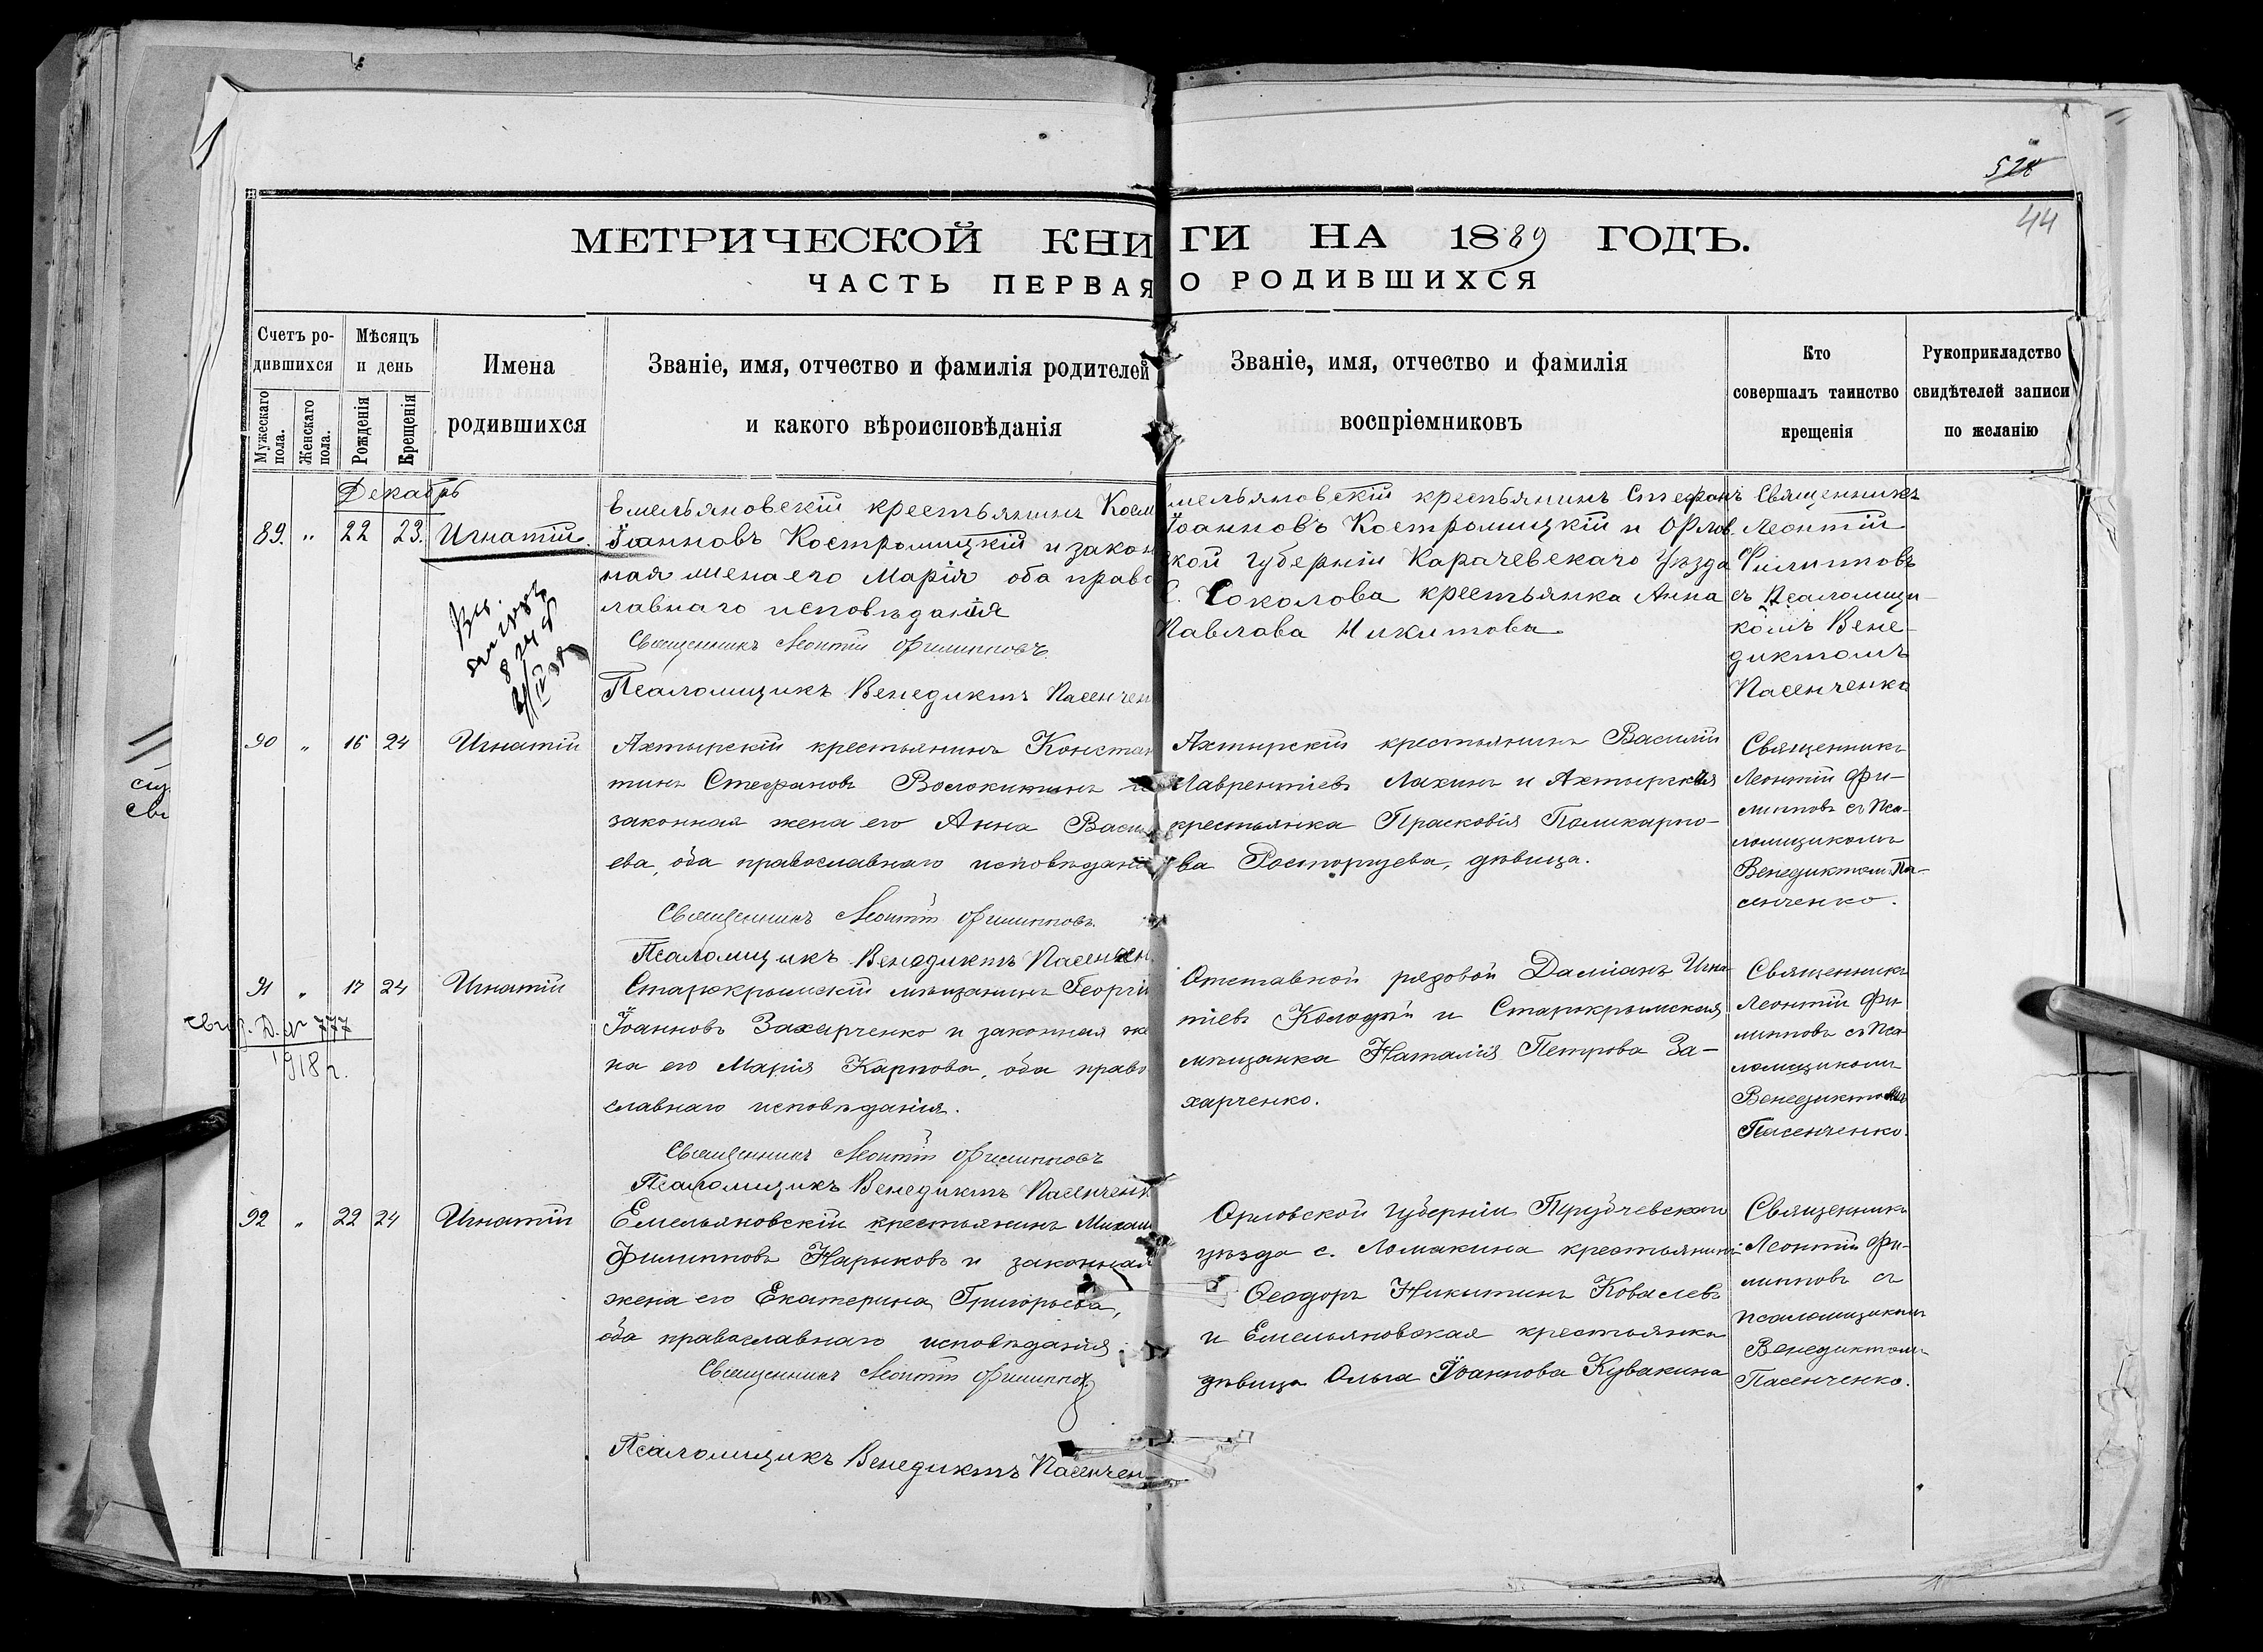 528
44
МЕТРИЧЕСКОЙ КНИГИ НА 1889 ГОДЪ.
ЧАСТЬ ПЕРВАЯ О РОДИВШИХСЯ
Счетъ ро-
дившихся
Мужескаго
пола.
Женскаго
пола.
Мѣсяцъ
и день
Рожденія
Крещенія
Имена
родившихся
Званіе, имя, отчество и фамилія родителей
и какого вѣроисповѣданія
Званіе, имя, отчество и фамилія
воспріемниковъ
Кто
совершалъ таинство
крещенія
Рукоприкладство
свидѣтелей записи
по желанію
Декабрь
89. „ 22 23. Игнатій.
Емельяновскій крестьянинъ Косм
Іоанновъ Костромицкій и закон
ная жена его Марія оба право
лавнаго исповѣданія
Священникъ Леонтій Филипповъ.
Псаломщикъ Венедиктъ Пасенчен
Емельяновскій крестьянинъ Стефанъ
Іоанновъ Костромицкій и Орлов
ской губерніи Карачевскаго Уѣзда
С. Соколова крестьянка Анна
Павлова Никитова
Священникъ
Леонтій
Филипповъ
съ Псаломщи-
комъ Вене-
диктомъ
Пасенченко
90 „ 16 24 Игнатій
Ахтырскій крестьянинъ Констан
тинъ Стефановъ Волокитинъ и
законная жена его Анна Васил
ева, оба православнаго исповѣдані
Священникъ Леонтій Филипповъ.
Псаломщикъ Венедиктъ Пасенчен
Ахтырскій крестьянинъ Василій
Лаврентіевъ Лахинъ и Ахтырская
крестьянка Прасковія Поликарпо-
ва Расторгуева, дѣвица.
Священникъ
Леонтій Фи-
липповъ съ Пса-
ломщикомъ
Венедиктом Па-
сенченко.
91 „ 17 24 Игнатій
Д. № 777
1918 г.
Старокрымскій мѣщанинъ Георгій
Іоанновъ Захарченко и законная же
на его Марія Карпова, оба право
славнаго исповѣданія.
Священникъ Леонтій Филипповъ
Псаломщикъ Венедиктъ Пасенченк
Отставной рядовой Даміанъ Игна-
тіевъ Колодій и Старокрымская
мѣщанка Наталія Петрова За-
харченко.
Священникъ
Леонтій Фи
липповъ съ Пса
ломщикомъ
Венедиктомъ
Пасенченко.
92 „ 22 24 Игнатій
Емельяновскій крестьянинъ Михаил
Филипповъ Нарыковъ и законная
жена его Екатерина Григорьева,
оба православнаго исповѣданія.
Священникъ Леонтій Филиппов
Псаломщикъ Венедиктъ Пасенчен
Орловской губерніи Трубчевскаго
уѣзда с. Ломакина крестьянинъ
Ѳеодоръ Никитинъ Ковалевъ
и Емельяновская крестьянка
дѣвица Ольга Іоаннова Кувакина
Священникъ
Леонтій Фи-
липповъ съ
псаломщикомъ
Венедиктомъ
Пасенченко.